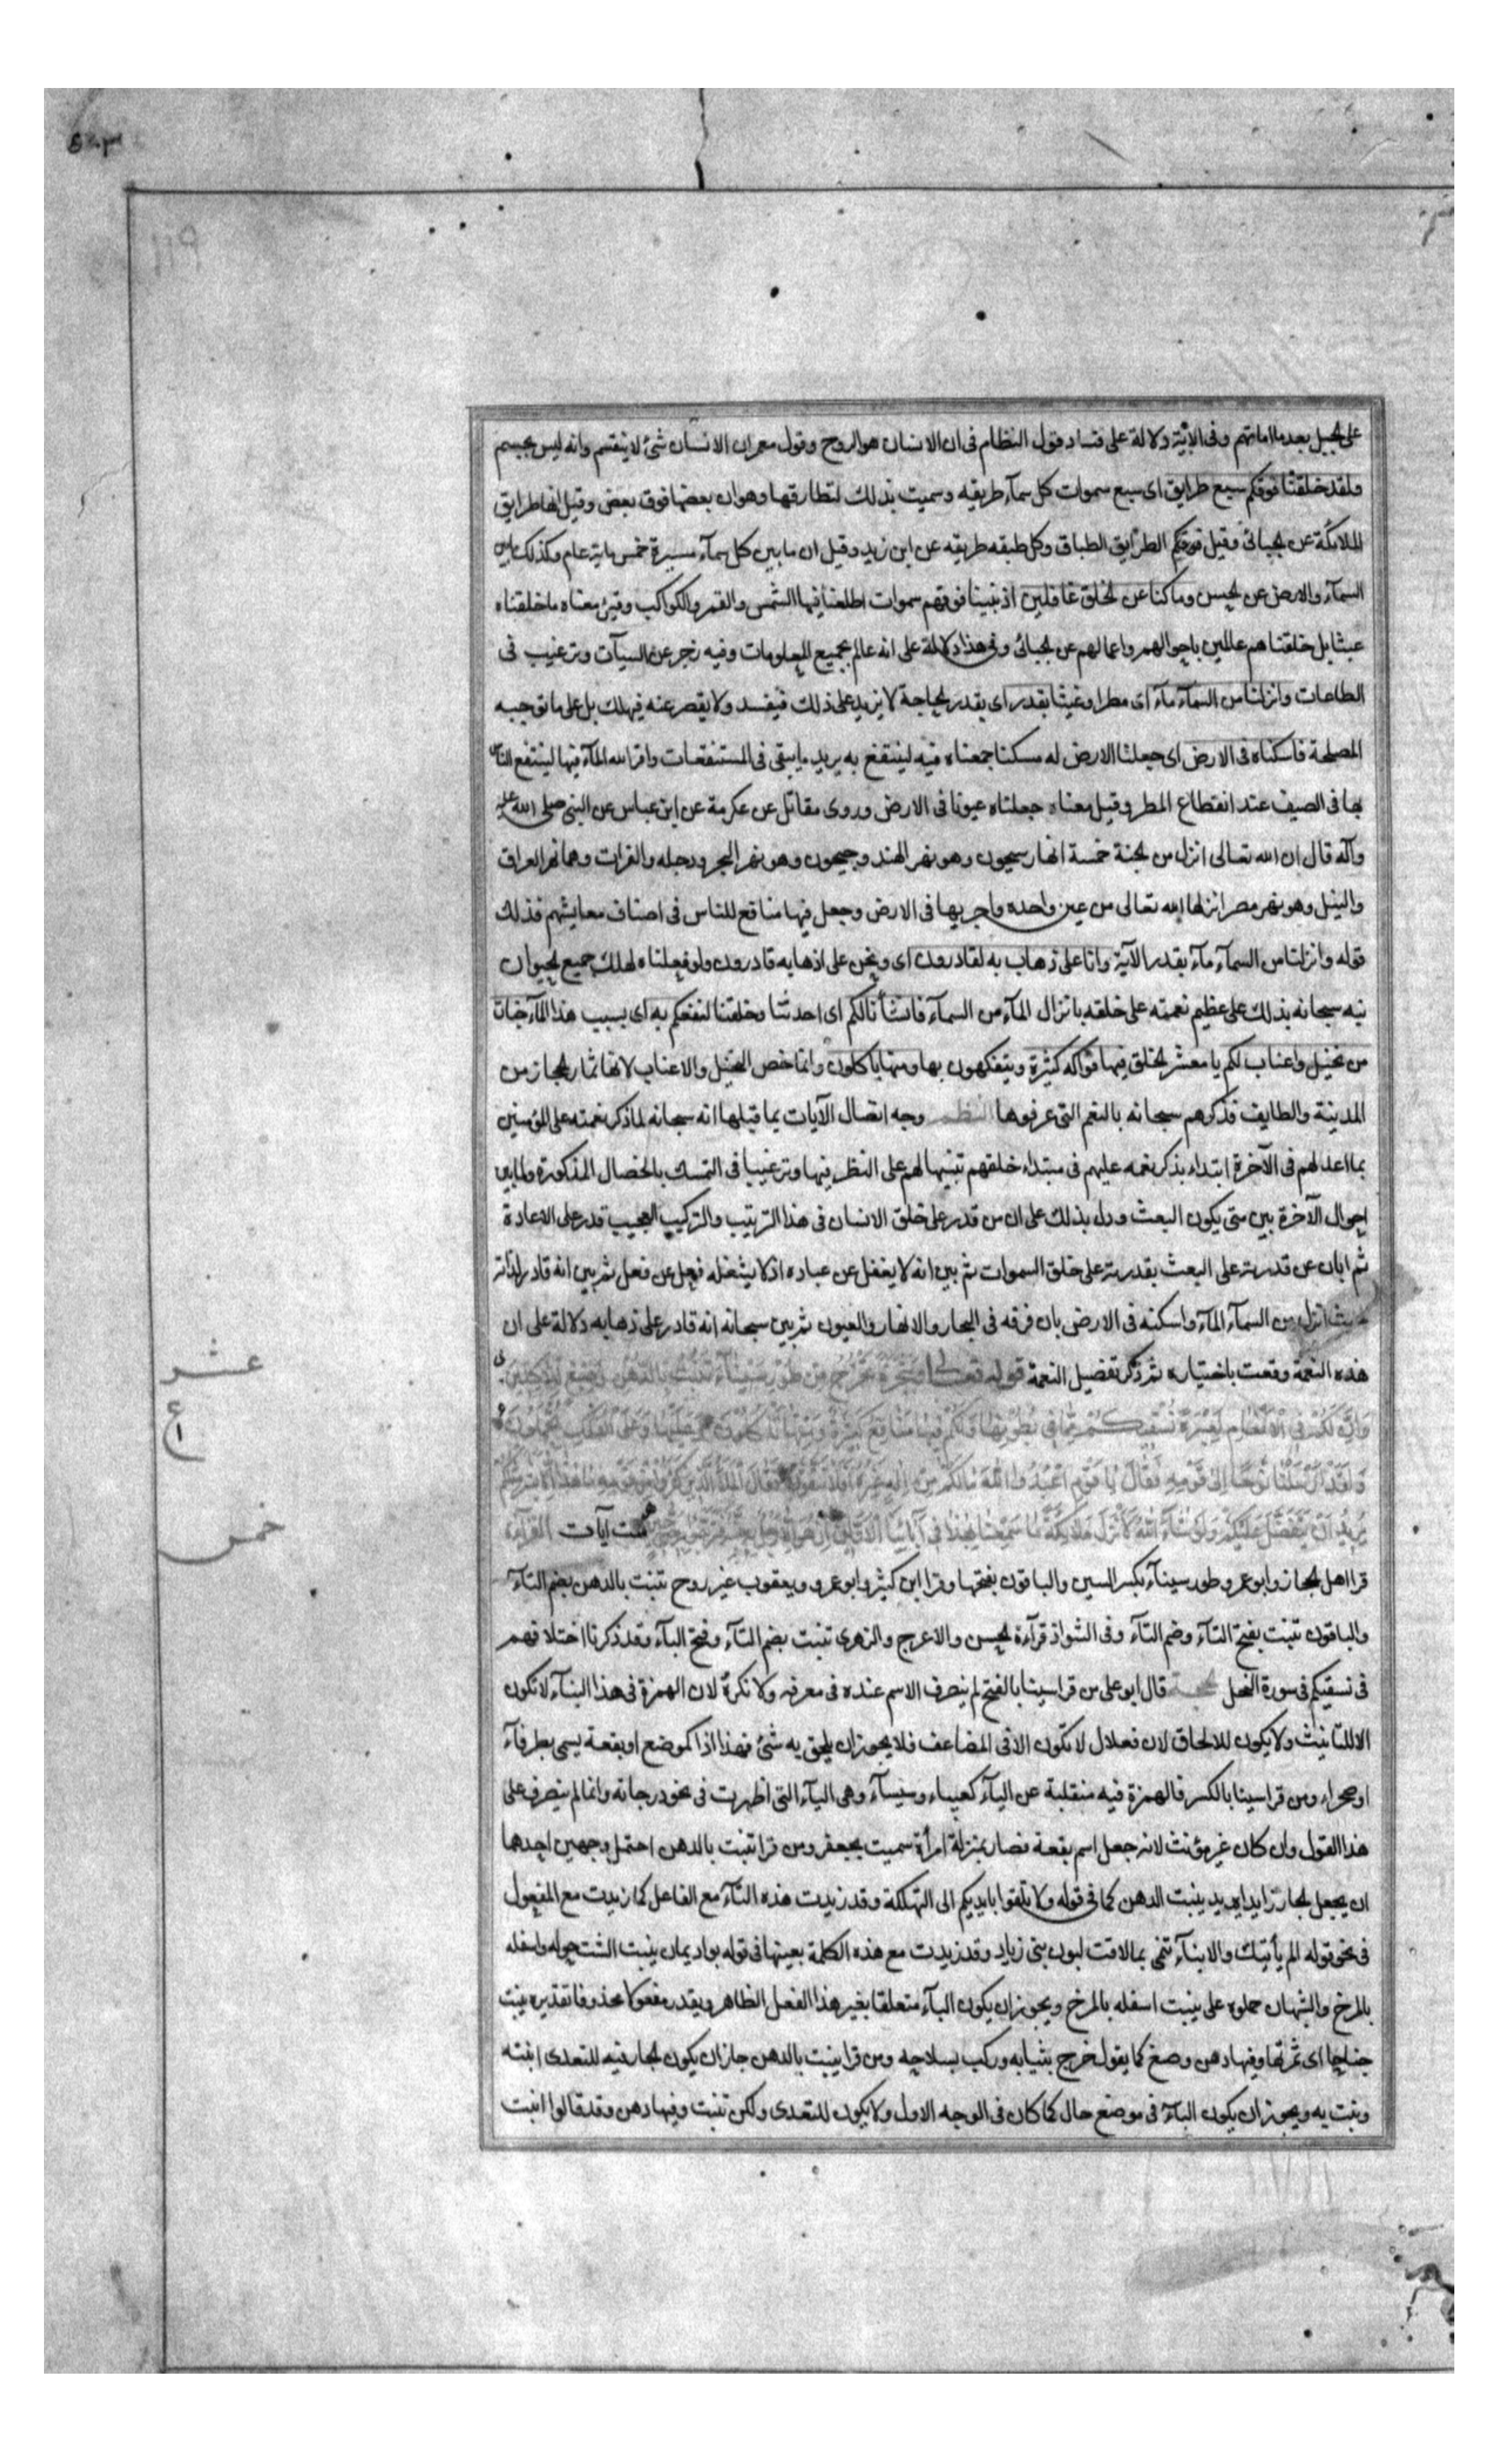 على الجبل بعد ما اماتهم وفى الآية دلالة على فساد قول النظام فى ان الانسان هو الروح وقول معمر ان الانسان شئ لا ينقسم وانه ليس بجسم
ولقد خلقنا فوقكم سبع طرايق اى سبع سموات كل سمآء طريقه وسميت بذلك لتطارقها وهو ان بعضها فوق بعض وقيل انها طرايق
الملائكة عن الجبائى وقيل فوقكم الطرايق الطباق وكل طبقه طريقه عن ابن زيد وقيل ان ما بين كل سمآء مسيرة خمس ماية عام وكذلك ما بين
السمآء والارض عن الحسن وما كنا عن الخلق غافلين اذ بنينا فوقهم سموات اطلعنا فيها الشمس والقمر والكواكب وقيل معناه ما خلقناه
عبثا بل خلقناهم عالمين باحوالهم واعمالهم عن الجبائى وفى هذا دلالة على انه عالم بجميع المعلومات وفيه زجر عن السيآت وترغيب فى
الطاعات وانزلنا من السمآء مآء اى مطرا وغيثا بقدر اى بقدر الحاجة لا يزيد على ذلك فيفسد ولا يقصر عنه فيهلك بل على ما توجبه
المصلحة فاسكناه فى الارض اى جعلنا الارض له مسكنا جمعناه فيه لينتفع به يريد ما يبقى فى المستنقعات واقر الله المآء فيها لينتفع الناس
بها فى الصيف عند انقطاع المطر وقيل معناه جعلناه عيونا فى الارض وروى مقاتل عن عكرمة عن ابن عباس عن النبى صلى الله عليه
وآله قال ان الله تعالى انزل من الجنة خمسة انهار سيحون وهو نهر الهند وجيحون وهو نهر البحر ودجله والفرات وهما نهر العراق
والنيل وهو نهر مصر انزلها الله تعالى من عين واحده واجريها فى الارض وجعل فيها منافع للناس فى اصناف معايشهم فذلك
قوله وانزلنا من السمآء مآء بقدر الآية وانا على ذهاب به لقادرون اى ونحن على اذهابه قادرون ولو فعلناه لهلك جميع الحيوان
نبه سبحانه بذلك على عظيم نعمته على خلقه بانزال المآء من السمآء فانشأنا لكم اى احدثنا وخلقنا لنفعكم به اى بسبب هذا المآء جنات
من نخيل واعناب لكم يا معشر الخلق فيها فواكه كثيرة ويتفكهون بها ومنها تاكلون وانما خص النخيل والاعناب لانها ثمار الحجاز من
المدينة والطايف فذكرهم سبحانه بالنعم التى عرفوها النظم وجه اتصال الآيات بما قبلها انه سبحانه لما ذكر نعمته على المؤمنين
بما اعد لهم فى الآخرة ابتداء بذكر نعمه عليهم فى مبتداء خلقهم تنبيها لهم على النظر فيها وترغيبا فى التمسك بالخصال المذكورة ولما بين
احوال الآخرة بين متى يكون البعث ودل بذلك على ان من قدر على خلق الانسان فى هذا الترتيب والتركيب العجيب قدر على الاعادة
ثم ابان عن قدرته على البعث بقدرته على خلق السموات ثم بين انه لا يغفل عن عباده اذ لا يشغله فعل عن فعل ثم بين انه قادر لذاته
انزل من السمآء المآء واسكنه فى الارض بان فرقه فى البحار والانهار والعيون ثم بين سبحانه انه قادر على ذهابه دلالة على ان
هذه النعمة وقعت باختياره ثم ذكر تفصيل النعمة قوله تعالى وشجرة تخرج من طور سيناء تنبت بالدهن وصبغ للآكلين
وان لكم فى الانعام لعبرة نسقيكم مما فى بطونها ولكم فيها منافع كثيرة ومنها تاكلون وعليها وعلى الفلك تحملون
ولقد ارسلنا نوحا الى قومه فقال يا قوم اعبدوا الله ما لكم من اله غيره افلا تتقون فقال الملأ الذين كفروا من قومه ما هذا الا بشر مثلكم
يريد ان يتفضل عليكم ولو شآء الله لانزل ملائكة ما سمعنا بهذا فى آبائنا الاولين ان هو الا رجل به جنة فتربصوا به حتى حين ست آيات القراءة
قرا اهل الحجاز وابو عمرو طور سينآء بكسر السين والباقون بفتحها وقرا ابن كثير وابو عمرو ويعقوب غير روح تنبت بالدهن بضم التآء
والباقون تنبت بفتح التآء وضم البآء وفى الشواذ قرآءة الحسن والاعرج والزهرى تنبت بضم التآء وفتح البآء وقد ذكرنا اختلافهم
فى نسقيكم فى سورة النحل الحجة قال ابو على من قرا سينا بالفتح لم ينصرف الاسم عنده فى معرفه ولا نكرة لان الهمزة فى هذا البنآء لا تكون
الا للتانيث ولا يكون للالحاق لان فعلال لا تكون الا فى المضاعف فلا يجوز ان يلحق به شئ فهذا اذا كموضع او بقعة يسمى بطرفآء
او صحراء ومن قرا سينا بالكسر فالهمزة فيه منقلبة عن اليآء كعلباء وسيسآء وهى اليآء التى اظهرت فى نحو درحاية وانما لم ينصرف على
هذا القول وان كان غير مؤنث لانه جعل اسم بقعة فصار بمنزلة امرأة سميت بجعفر ومن قرا تنبت بالدهن احتمل وجهين احدهما
ان يجعل الجار زايدا يريد ينبت الدهن كما فى قوله ولا تلقوا بايديكم الى التهلكة وقد زيدت هذه البآء مع الفاعل كما زيدت مع المفعول
فى نحو قوله الم يأتيك والانبآء تنمى بما لاقت لبون بنى زياد وقد زيدت مع هذه الكلمة بعينها فى قوله بواد يمان ينبت الشث حوله واسفله
بالمرخ والشبهان حملوه على ينبت اسفله بالمرخ ويجوز ان يكون البآء متعلقا بغير هذا الفعل الظاهر ويقدر مفعولا محذوفا تقديره ينبت
جناها اى ثمرتها وفيها دهن وصبغ كما يقول خرج بثيابه وركب بسلاحه ومن قرا ينبت بالدهن جاز ان يكون الجار فيه للتعدى انبته
ونبت به ويجوز ان يكون البآء فى موضع حال كما كان فى الوجه الاول ولا يكون للتعدى ولكن تنبت وفيها دهن وقد قالوا انبت
عشر
ع
خمس